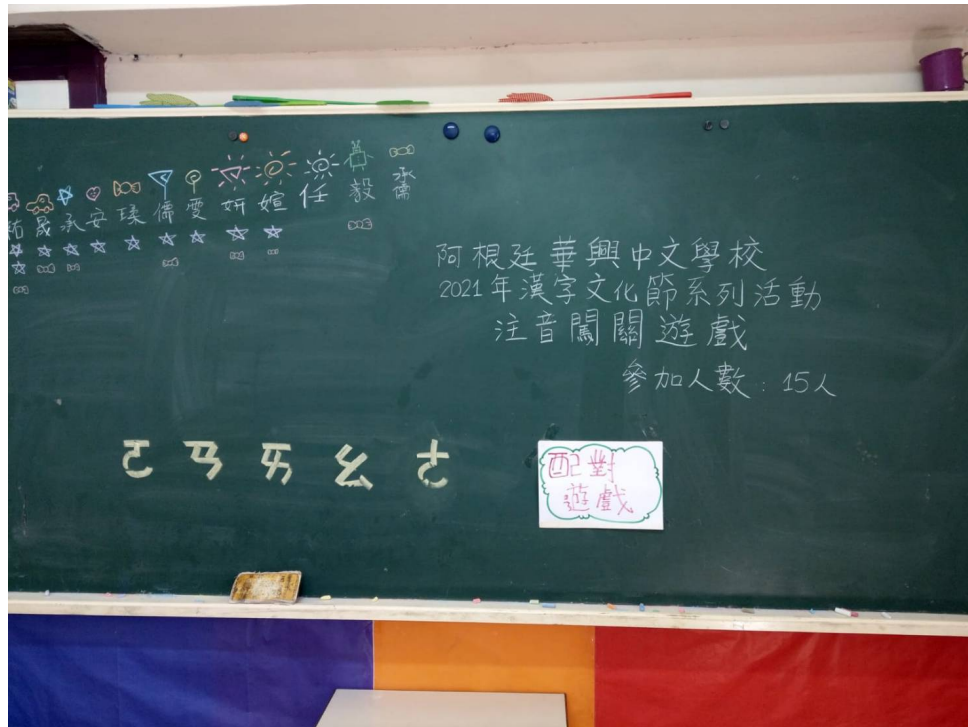 晟 承 安 儒 雯 妍 媗 任 毅 承儒
阿根廷華興中文學校
2021年漢字文化節系列活動
注音闖關遊戲
參加人數:15人
ㄛ ㄢ ㄞ ㄠ ㄜ
配對
遊戲